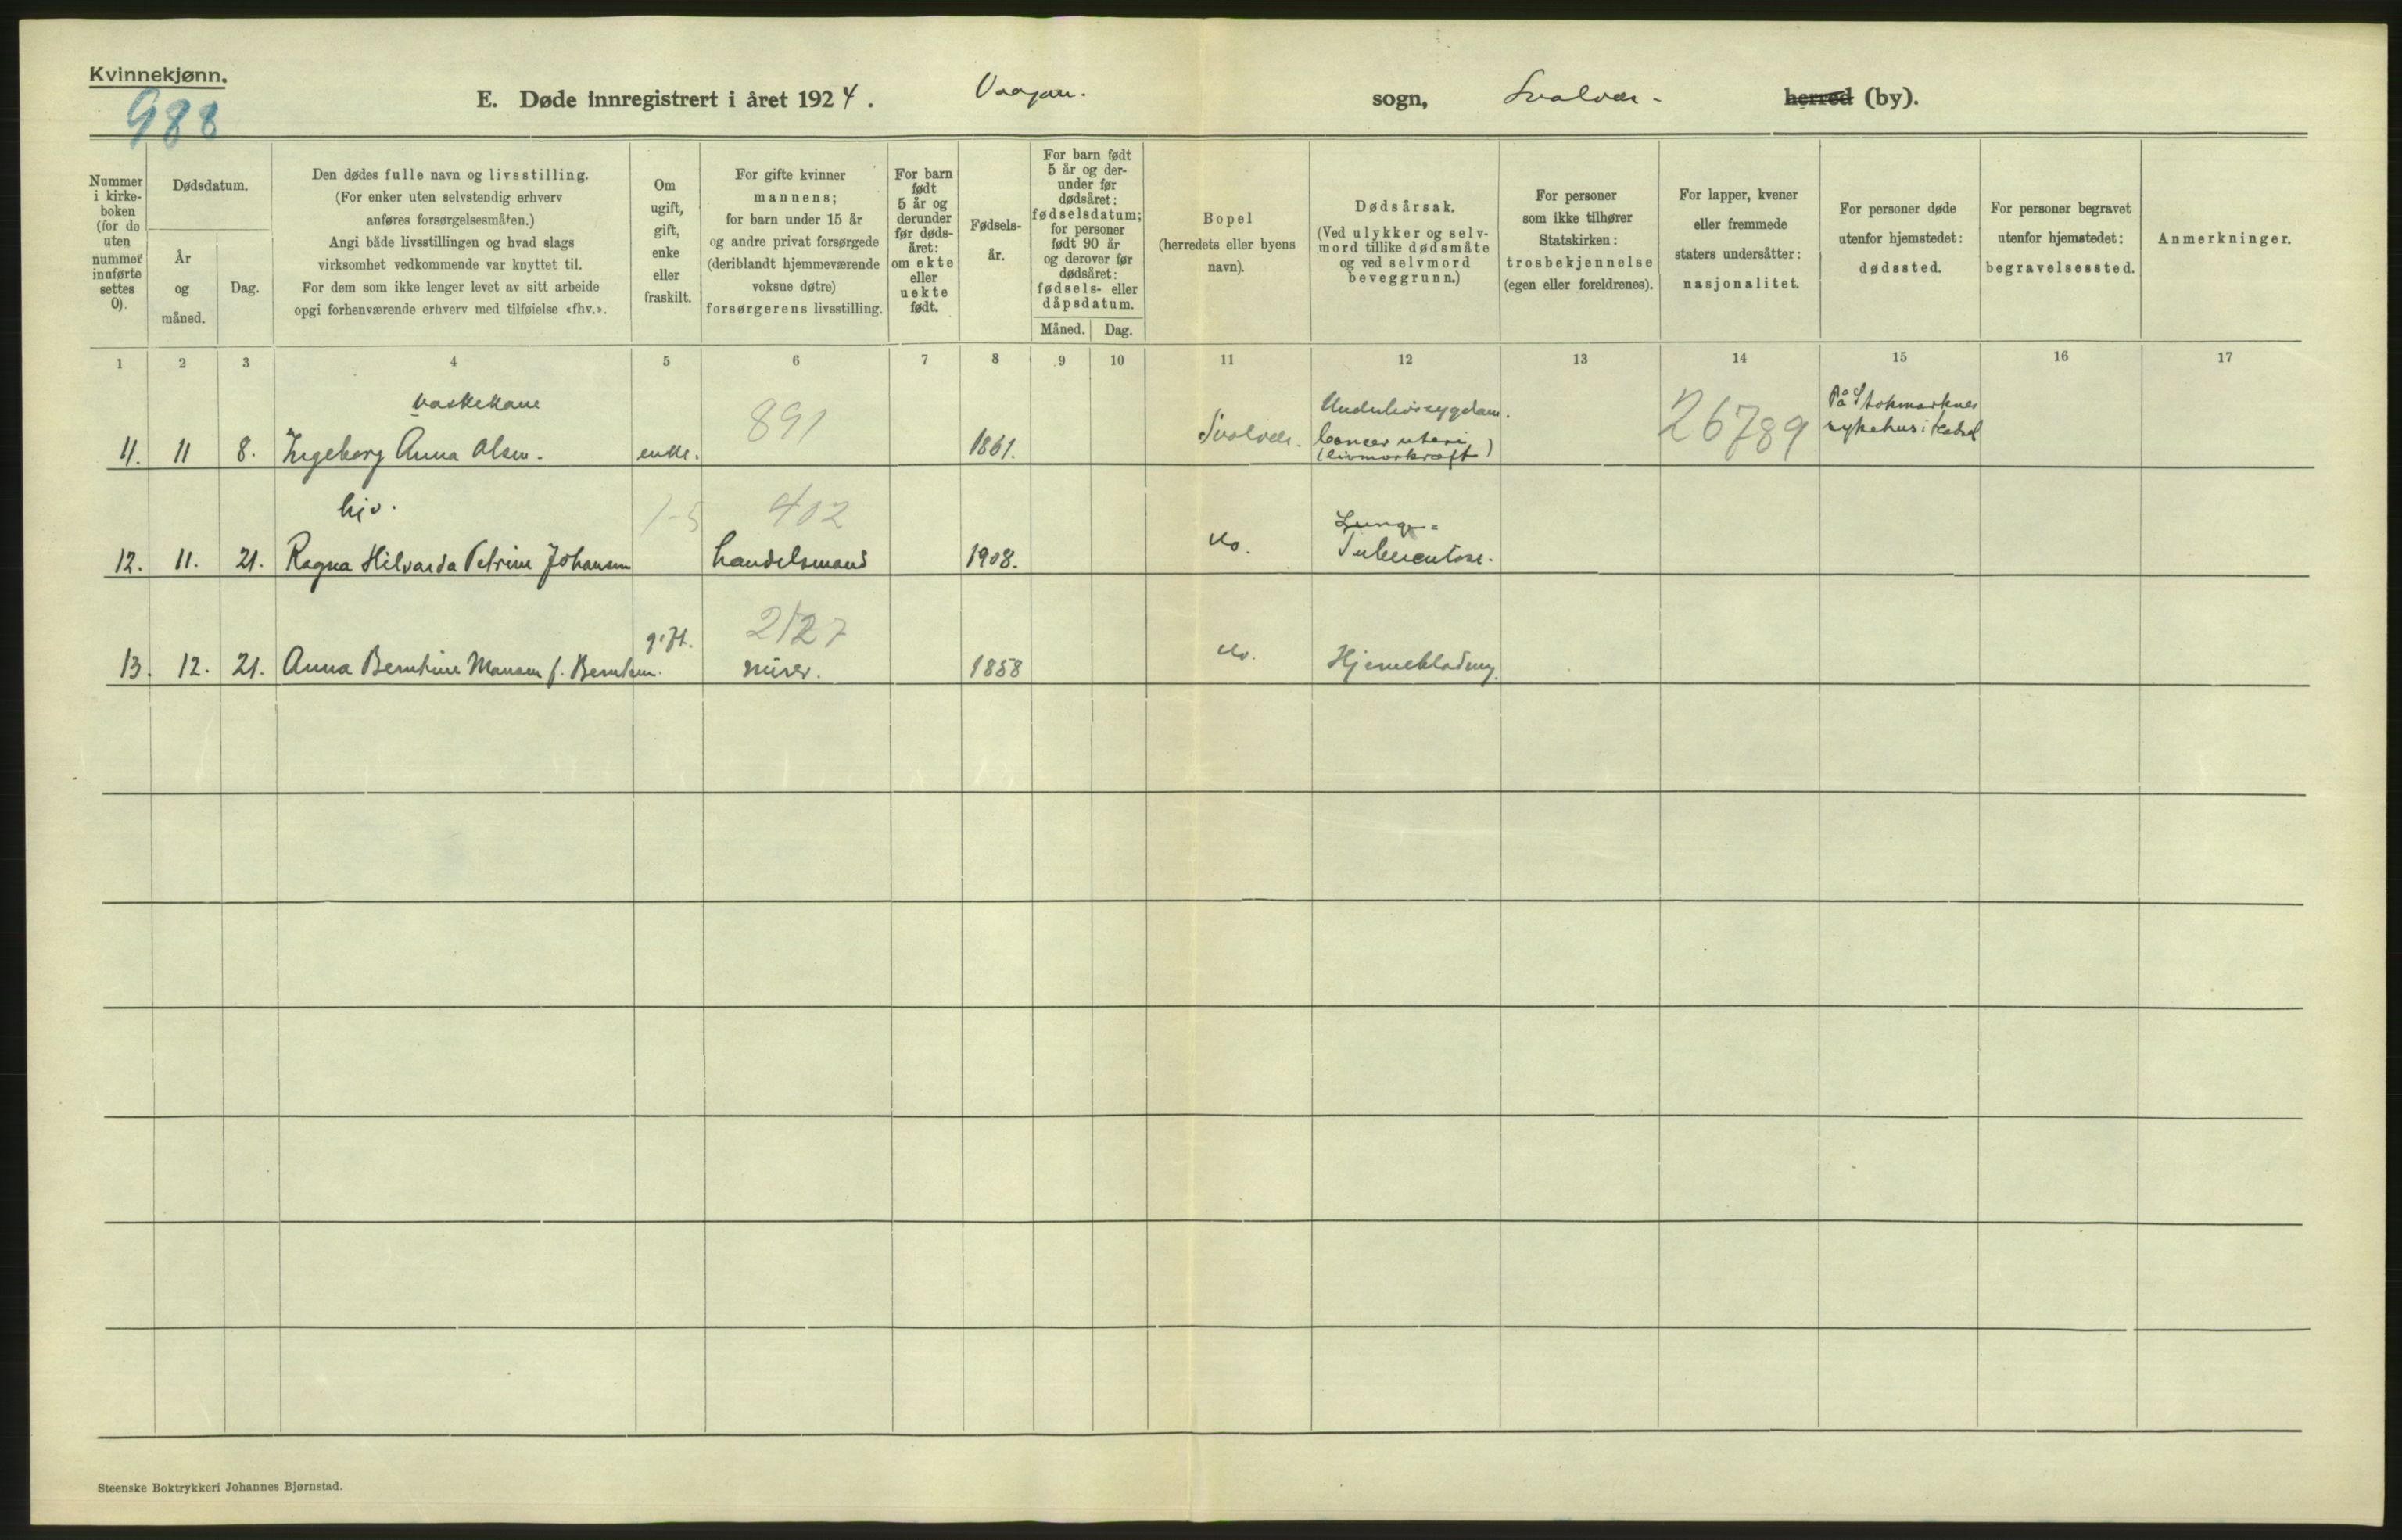 Kvinnekjønn.
988
E. Døde innregistrert i året 1924. Vaagan. sogn, Svolvær - herred (by).
Nummer i kirkeboken (for de uten nummer innførte settes 0).
Dødsdatum.
År og måned.
Dag.
Den dødes fulle navn og livsstilling.
(For enker uten selvstendig erhverv
anføres forsørgelsesmåten.)
Angi både livsstillingen og hvad slags
virksomhet vedkommende var knyttet til.
For dem som ikke lenger levet av sitt arbeide
opgi forhenværende erhverv med tilføielse «fhv.».
Om
ugift,
gift,
enke
eller
fraskilt.
For gifte kvinner
mannens;
for barn under 15 år
og andre privat forsørgede
(deriblandt hjemmeværende
voksne døtre)
forsørgerens livsstilling.
For barn
født
5 år og
derunder
før døds-
året:
om ekte
eller
uekte
født.
Fødsels-
år.
For barn født
5 år og der-
under før
dødsåret:
fødselsdatum;
for personer
født 90 år
og derover før
dødsåret:
fødsels- eller
dåpsdatum.
Måned. Dag.
Bopel
(herredets eller byens
navn).
Dødsårsak.
(Ved ulykker og selv-
mord tillike dødsmåte
og ved selvmord
beveggrunn.)
For personer
som ikke tilhører
Statskirken:
trosbekjennelse
(egen eller foreldrenes).
For lapper, kvener
eller fremmede
staters undersåtter:
nasjonalitet.
For personer døde
utenfor hjemstedet:
dødssted.
For personer begravet
utenfor hjemstedet:
begravelsessted.
Anmerkninger.
1 2 3 4 5 6 7 8 9 10 11 12 13 14 15 16 17
vaskekone 891 Underlivssygdom. 26789 På Stokmarknes
11. 11 8. Ingeborg Anna Olsen. enke. 1861. Svolvær. Cancer uteri sykehus i Hadsel
(Livmorkræft)
hjv. 1-5 402 Lunge-
12. 11. 21. Ragna Hilvarda Petrine Johansen handelsmand 1908. do. Tuberculose.
gift. 2127
13. 12. 21. Anna Berntine Mansen f. Berntsen. snider. 1858 do. Hjerneblødning.
Steenske Boktrykkeri Johannes Bjørnstad.